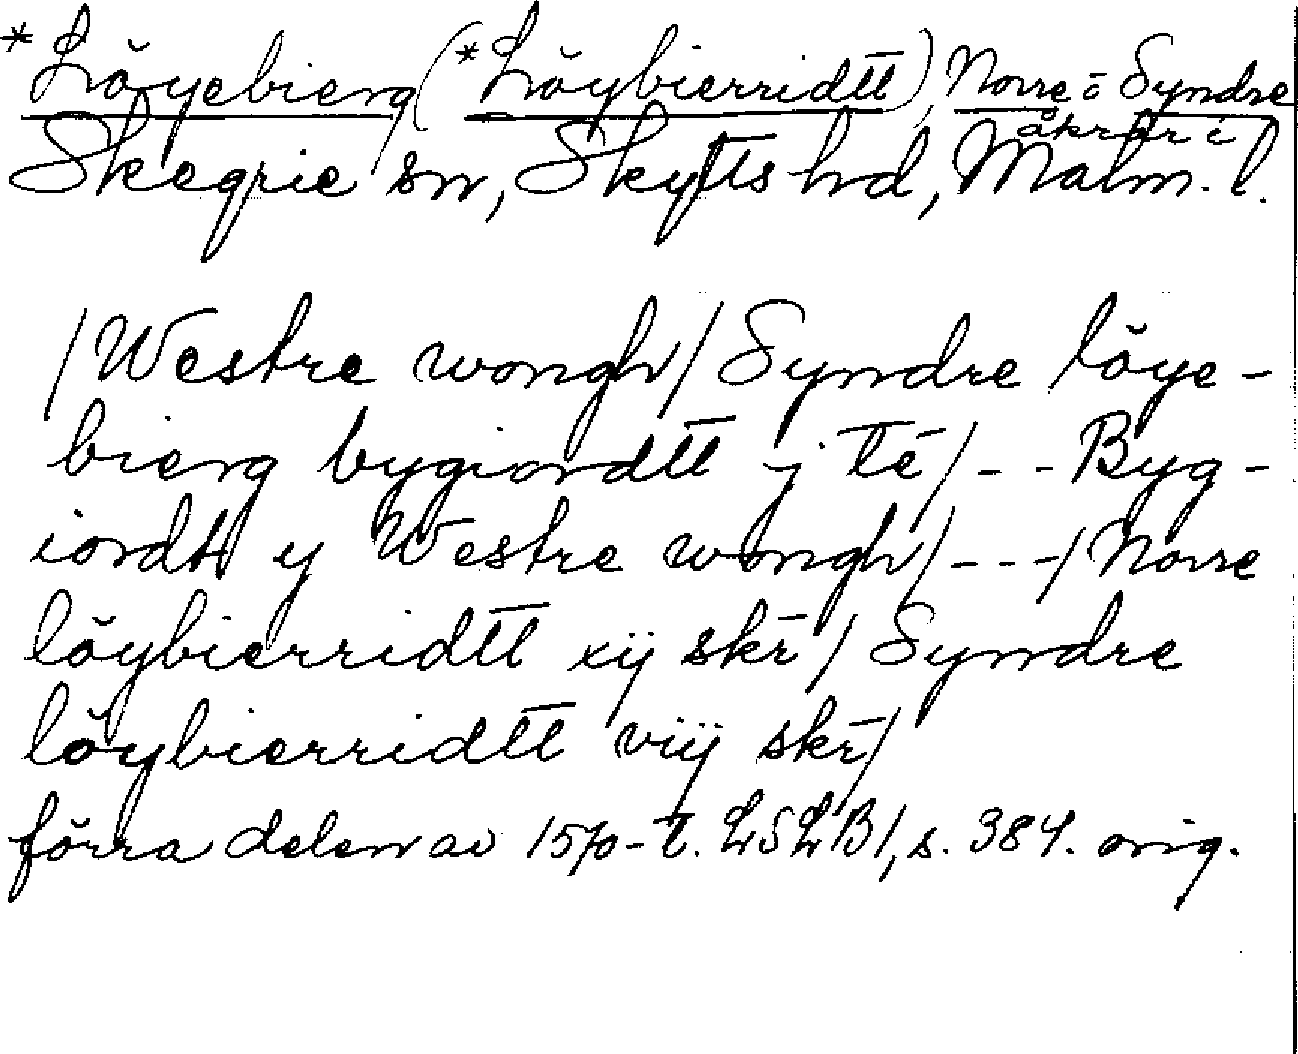 *Löyebierg (*Löybierridtt), Norre o Syndre
åkrar i
Skegrie sn, Skytts hd, Malm. l.
/Westre wongh/ Syndre löye-
bierg bygiordtt j té/ - - Byg-
iordt y Westre wongh/ - - -/ Norre
löybierridtt xij skr̄ / Syndre
löybierridtt viij skr̄/
förra delen av 1570-t. LSLB1, s. 384. orig.